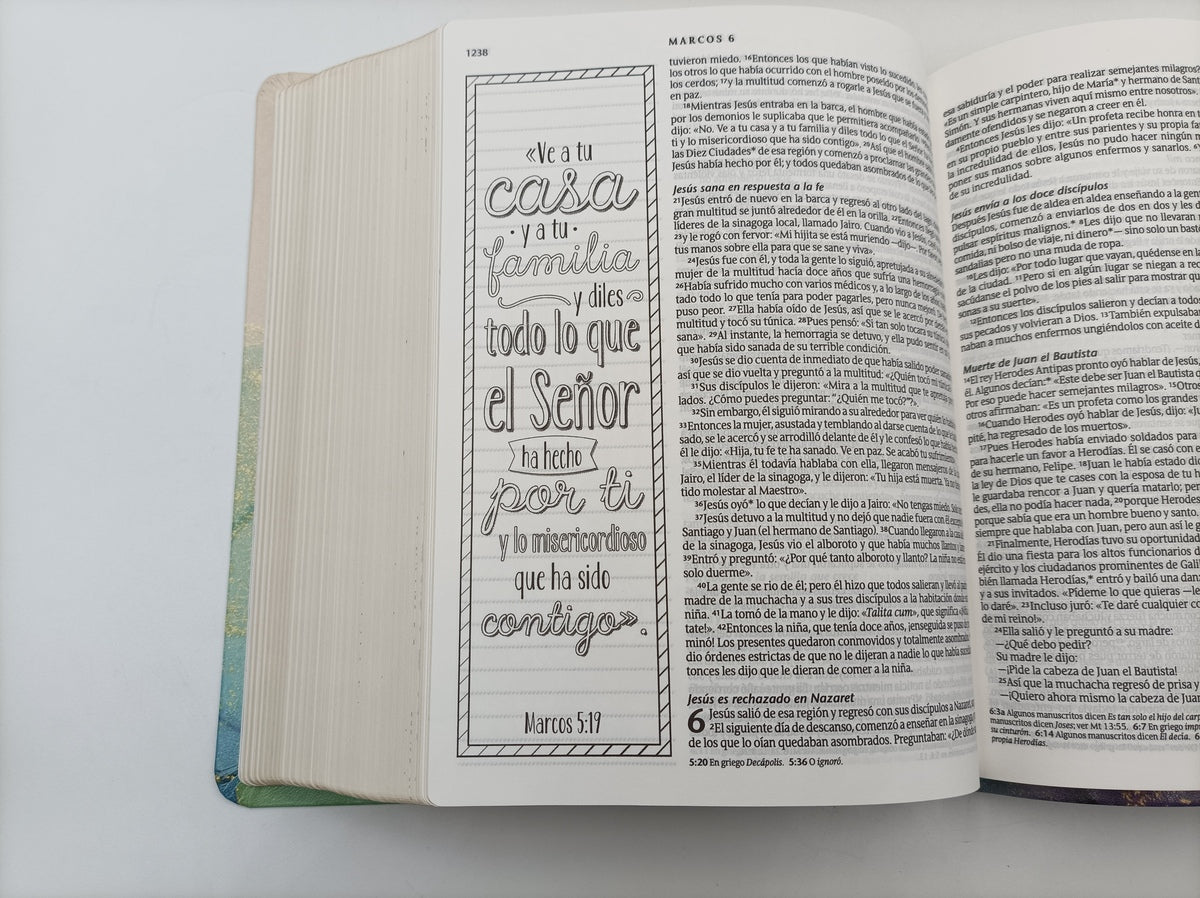 1238
MARCOS 6
«Ve a tu
casa
· y a tu ·
familia
y diles
todo lo que
el Señor
ha hecho
por ti
y lo misericordioso
que ha sido
contigo».
Marcos 5:19
tuvieron miedo. 16Entonces los que habían visto lo sucedido
los otros lo que había ocurrido con el hombre poseído por los
los cerdos; 17y la multitud comenzó a rogarle a Jesús que se fuera
en paz.
18Mientras Jesús entraba en la barca, el hombre que había
por los demonios le suplicaba que le permitiera acompañarlo.
dijo: «No. Ve a tu casa y a tu familia y diles todo lo que el Señor
ti y lo misericordioso que ha sido contigo». 20Así que el hombre
las Diez Ciudades* de esa región y comenzó a proclamar las
Jesús había hecho por él; y todos quedaban asombrados de lo que
Jesús sana en respuesta a la fe
21Jesús entró de nuevo en la barca y regresó al otro lado del lago
gran multitud se juntó alrededor de él en la orilla. 22Entonces llegó
líderes de la sinagoga local, llamado Jairo. Cuando vio a Jesús,
23y le rogó con fervor: «Mi hijita se está muriendo —dijo—. Por
tus manos sobre ella para que se sane y viva».
24Jesús fue con él, y toda la gente lo siguió, apretujada a su
mujer de la multitud hacía doce años que sufría una hemorragia
26Había sufrido mucho con varios médicos y, a lo largo de los años,
tado todo lo que tenía para poder pagarles, pero nunca mejoró.
puso peor. 27Ella había oído de Jesús, así que se le acercó por
multitud y tocó su túnica. 28Pues pensó: «Si tan solo tocara su túnica
sana». 29Al instante, la hemorragia se detuvo, y ella pudo sentir en
que había sido sanada de su terrible condición.
30Jesús se dio cuenta de inmediato de que había salido poder
así que se dio vuelta y preguntó a la multitud: «¿Quién tocó mi túnica
31Sus discípulos le dijeron: «Mira a la multitud que te apretuja
lados. ¿Cómo puedes preguntar: "¿Quién me tocó?"».
32Sin embargo, él siguió mirando a su alrededor para ver quién lo
33Entonces la mujer, asustada y temblando al darse cuenta de lo que
sado, se le acercó y se arrodilló delante de él y le confesó lo que había
él le dijo: «Hija, tu fe te ha sanado. Ve en paz. Se acabó tu sufrimiento
35Mientras él todavía hablaba con ella, llegaron mensajeros de la
Jairo, el líder de la sinagoga, y le dijeron: «Tu hija está muerta. Ya no
tido molestar al Maestro».
36Jesús oyó* lo que decían y le dijo a Jairo: «No tengas miedo. Solo
37Jesús detuvo a la multitud y no dejó que nadie fuera con él excepto
Santiago y Juan (el hermano de Santiago). 38Cuando llegaron a la casa
de la sinagoga, Jesús vio el alboroto y que había muchos llantos y
39Entró y preguntó: «¿Por qué tanto alboroto y llanto? La niña no está
solo duerme».
40La gente se rio de él; pero él hizo que todos salieran y llevó al
madre de la muchacha y a sus tres discípulos a la habitación donde
niña. 41La tomó de la mano y le dijo: «Talita cum», que significa «¡Niña
tate!». 42Entonces la niña, que tenía doce años, ¡enseguida se puso de
minó! Los presentes quedaron conmovidos y totalmente asombrados
dio órdenes estrictas de que no le dijeran a nadie lo que había
tonces les dijo que le dieran de comer a la niña.
Jesús es rechazado en Nazaret
6 Jesús salió de esa región y regresó con sus discípulos a Nazaret, su
2El siguiente día de descanso, comenzó a enseñar en la sinagoga,
de los que lo oían quedaban asombrados. Preguntaban: «¿De dónde
5:20 En griego Decápolis. 5:36 O ignoró.
esa sabiduría y el poder para realizar semejantes milagros?
«Es un simple carpintero, hijo de María* y hermano de Sant
Simón. Y sus hermanas viven aquí mismo entre nosotros».
damente ofendidos y se negaron a creer en él.
4Entonces Jesús les dijo: «Un profeta recibe honra en
en su propio pueblo y entre sus parientes y su propia fa
la incredulidad de ellos, Jesús no pudo hacer ningún m
poner sus manos sobre algunos enfermos y sanarlos. 6Y
de su incredulidad.
Jesús envía a los doce discípulos
Después Jesús fue de aldea en aldea enseñando a la gent
discípulos, comenzó a enviarlos de dos en dos y les d
pulsar espíritus malignos.* 8Les dijo que no llevaran
comida, ni bolso de viaje, ni dinero*— sino solo un bast
sandalias pero no una muda de ropa.
10Les dijo: «Por todo lugar que vayan, quédense en la
de la ciudad. 11Pero si en algún lugar se niegan a rec
sacúdanse el polvo de los pies al salir para mostrar qu
sonas a su suerte».
12Entonces los discípulos salieron y decían a todo
sus pecados y volvieran a Dios. 13También expulsaba
naban a muchos enfermos ungiéndolos con aceite
Muerte de Juan el Bautista
14El rey Herodes Antipas pronto oyó hablar de Jesús,
él. Algunos decían:* «Este debe ser Juan el Bautista q
Por eso puede hacer semejantes milagros». 15Otro
otros afirmaban: «Es un profeta como los grandes
16Cuando Herodes oyó hablar de Jesús, dijo: «Ju
pité, ha regresado de los muertos».
17Pues Herodes había enviado soldados para
para hacerle un favor a Herodías. Él se casó con e
de su hermano, Felipe. 18Juan le había estado dic
la ley de Dios que te cases con la esposa de tu h
le guardaba rencor a Juan y quería matarlo; per
des, ella no podía hacer nada, 20porque Herodes
porque sabía que era un hombre bueno y santo.
siempre que hablaba con Juan, pero aun así le g
21Finalmente, Herodías tuvo su oportunidad
Él dio una fiesta para los altos funcionarios d
ejército y los ciudadanos prominentes de Galil
bién llamada Herodías,* entró y bailó una dan
y a sus invitados. «Pídeme lo que quieras —le
lo daré». 23Incluso juró: «Te daré cualquier co
de mi reino!».
24Ella salió y le preguntó a su madre:
—¿Qué debo pedir?
Su madre le dijo:
—¡Pide la cabeza de Juan el Bautista!
25Así que la muchacha regresó de prisa y
—¡Quiero ahora mismo la cabeza de Juan
6:3a Algunos manuscritos dicen Es tan solo el hijo del carp
manuscritos dicen Joses; ver Mt 13:55. 6:7 En griego imp
su cinturón. 6:14 Algunos manuscritos dicen Él decía. 6
propia Herodías.